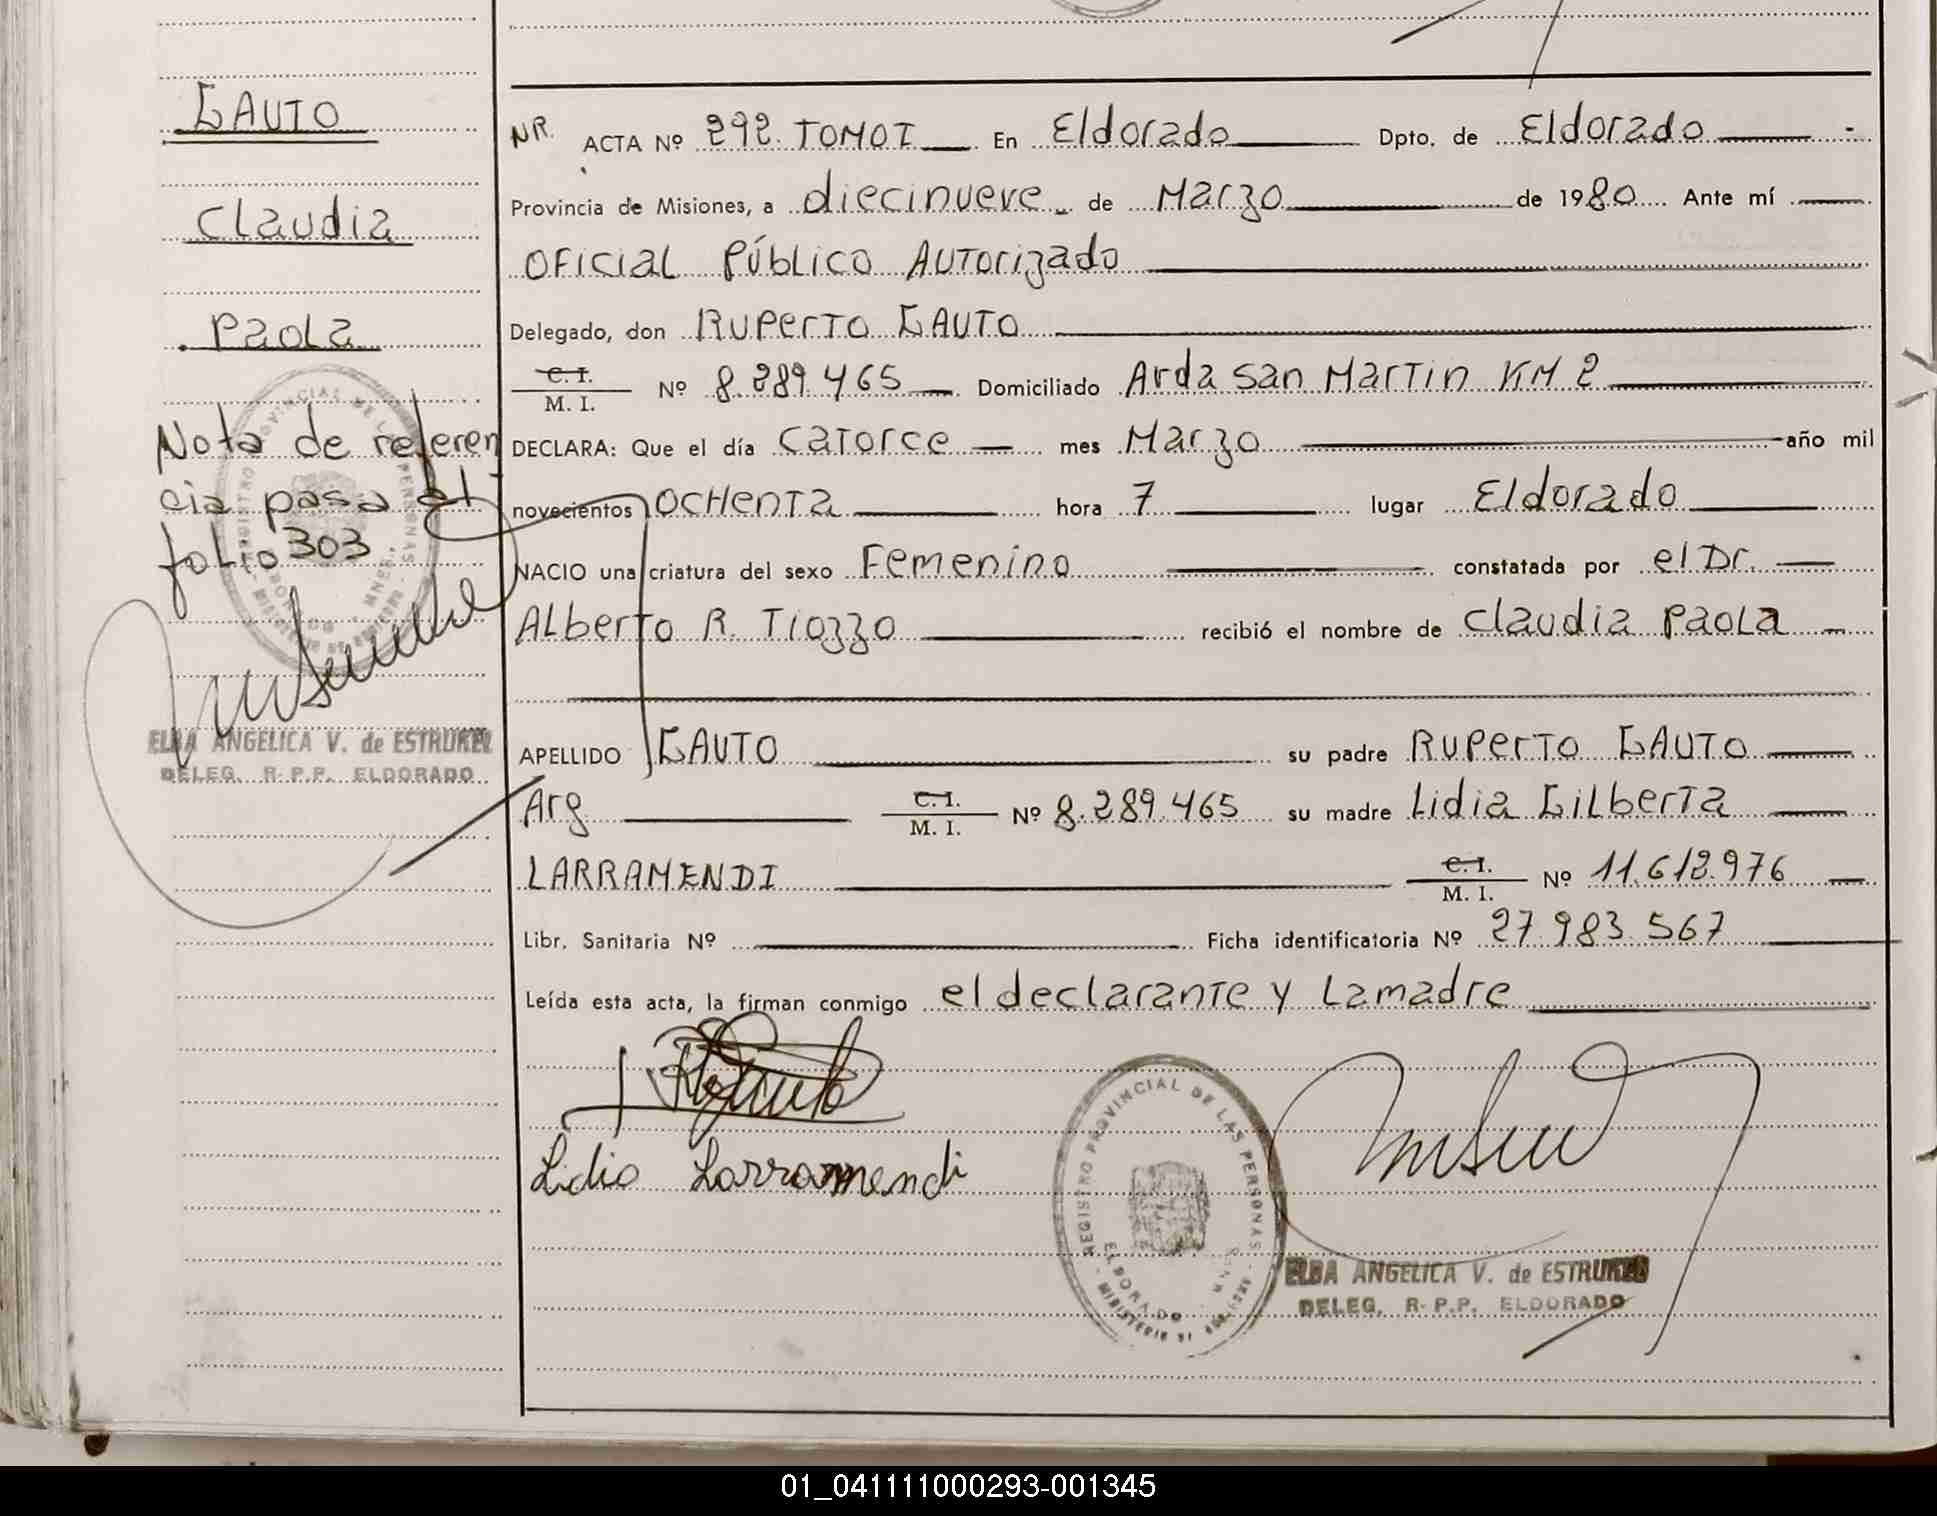 GAUTO
Claudia
Paola
Nota de referen
cia pasa al
folio 303
ELBA ANGELICA V. de ESTRUKEL
DELEG. R.P.P. ELDORADO
NR. ACTA Nº 292. TOMO I En Eldorado Dpto. de Eldorado
Provincia de Misiones, a diecinueve de Marzo de 1980 Ante mí
Oficial Público Autorizado
Delegado, don Ruperto GAUTO
C. I. M. I. Nº 8.289.465 Domiciliado Avda San Martin KM 2
DECLARA: Que el día catorce mes Marzo año mil
novecientos ochenta hora 7 lugar Eldorado
NACIO una criatura del sexo Femenino constatada por el Dr.
Alberto R. Tiozzo recibió el nombre de Claudia Paola
APELLIDO GAUTO su padre Ruperto GAUTO
Arg C. I. M. I. Nº 8.289.465 su madre Lidia Gilberta
LARRAMENDI C. I. M. I. Nº 11.612.976
Libr. Sanitaria Nº Ficha identificatoria Nº 27.983.567
Leída esta acta, la firman conmigo el declarante y la madre
Lidia Larramendi
REGISTRO PROVINCIAL DE LAS PERSONAS
ELDORADO
ELBA ANGELICA V. de ESTRUKEL
DELEG. R.P.P. ELDORADO
01_041111000293-001345